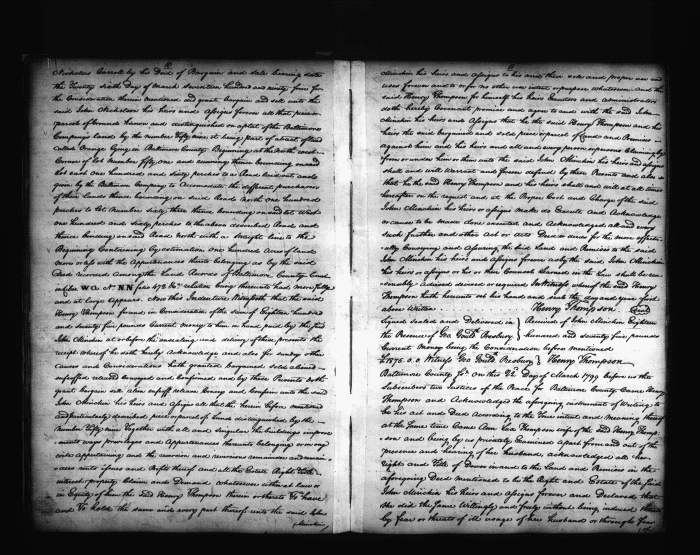 Nicholas Carroll by his Deed of Bargain and Sale bearing date
the Twenty sixth Day of March Seventeen hundred and ninety four for
the Consideration therein mentioned did grant bargain and sell unto the
said John Minchin his heirs and Assigns forever all that piece or
parcel of Ground known and distinguished on a plat of the Baltimore
Company Land by the number fifty nine it being part of a tract of Land
called Orange lying in Baltimore County Beginning at the North
Corner of lot Number fifty one and running thence bounding on said
lot East one hundred and sixty perches to a Road laid out and
given by the Baltimore Company to Accomodate the different purchasers
of their Lands thence bounding on said Road North one hundred
perches to Lot Number sixty three thence bounding on said lot West
one hundred and sixty perches to the above described Road and
thence bounding on said Road South with a straight line to the
Beginning Containing by estimation one hundred Acres of Land
more or less with the Appurtenances thereto belonging as by the said
Deed recorded Among the Land Records of Baltimore County Court
in Liber W.G. No NN folio 478 &c relation being thereunto had more fully
and at large Appears. Now this Indenture Witnesseth that the said
Henry Thompson for and in Consideration of the sum of Eighteen hundred
and seventy five pounds Current money to him in hand paid by the said
John Minchin at or before the ensealing and delivery of these presents the
receipt whereof he doth hereby Acknowledge and also for sundry other
causes and Considerations hath granted bargained sold aliened
enfeoffed released conveyed and Confirmed and by these Presents doth
grant bargain sell alien enfeoff release Convey and Confirm unto the said
John Minchin his heirs and Assigns all that the herein before mentioned
and particularly described piece or parcel of Ground distinguished by the
Number fifty nine Together with all and singular the buildings improve
ments ways priviledges and Appurtenances thereunto belonging or in any
wise appertaining and the reversion and reversions remainder and remain
ders rents issues and profits thereof and all the Estate Right title
interest property Claim and Demand whatsoever either at law or
in Equity of him the said Henry Thompson therein or thereto To have
and To hold the same and every part thereof unto the said John
Minchin
Minchin his heirs and Assigns to his and their sole and proper use and
uses forever and to or for no other use intent or purpose whatsoever. And the
said Henry Thompson for himself his heirs Executors and Administrators
do th hereby Covenant promise and agree to and with the said John
Minchin his heirs and Assigns that he the said Henry Thompson and his
heirs the said bargained and sold piece or parcel of Ground and Premises
against him and his heirs and all and every person or persons Claiming by
from or under him or them unto the said John Minchin his heirs and Assigns
shall and will Warrant and forever defend by these Presents and also
that he the said Henry Thompson and his heirs shall and will at all times
hereafter on the request and at the Proper Cost and Charge of the said
John Minchin his heirs or assigns make do Execute and Acknowledge
or cause to be made done Executed and Acknowledged all and every
such further and other Act or acts Deed or devise for the more effectu
ally Conveying and Assuring the said Land and Premises to the said
John Minchin his heirs and Assigns forever as by the said John Minchin
his heirs or assigns or his or their Counsel learned in the law shall be rea
sonably advised devised or required In Witness whereof the said Henry
Thompson hath hereunto set his hand and seal the day and year first
above Written Henry Thompson Seal
Signed sealed and Delivered in } Received of John Minchin Eighteen
the Presence of Geo. Gould Presbury } hundred and seventy five pounds
Current Money being the Consideration before mentioned
£1875.0.0 Witness Geo Gould Presbury } Henry Thompson
Baltimore County Sct On this Day of March 1799 before us the
Subscribers two Justices of the Peace for Baltimore County Came Henry
Thompson and Acknowledged the aforegoing instrument of Writing to
be his act and Deed According to the true intent and Meaning thereof
at the same time Came Ann Lux Thompson wife of the said Henry Thomp
son and being by us privately Examined apart from and out of the
presence and hearing of her husband, acknowledged all her
Rights and Title of Dower in and to the Land and Premises in the
aforegoing Deed mentioned to be the Right and Estate of the said
John Minchin his Heirs and Assigns forever and Declared that
she did the same Willingly and freely without being induced thereto
by Fear or threats of ill usage of her Husband or through Fear